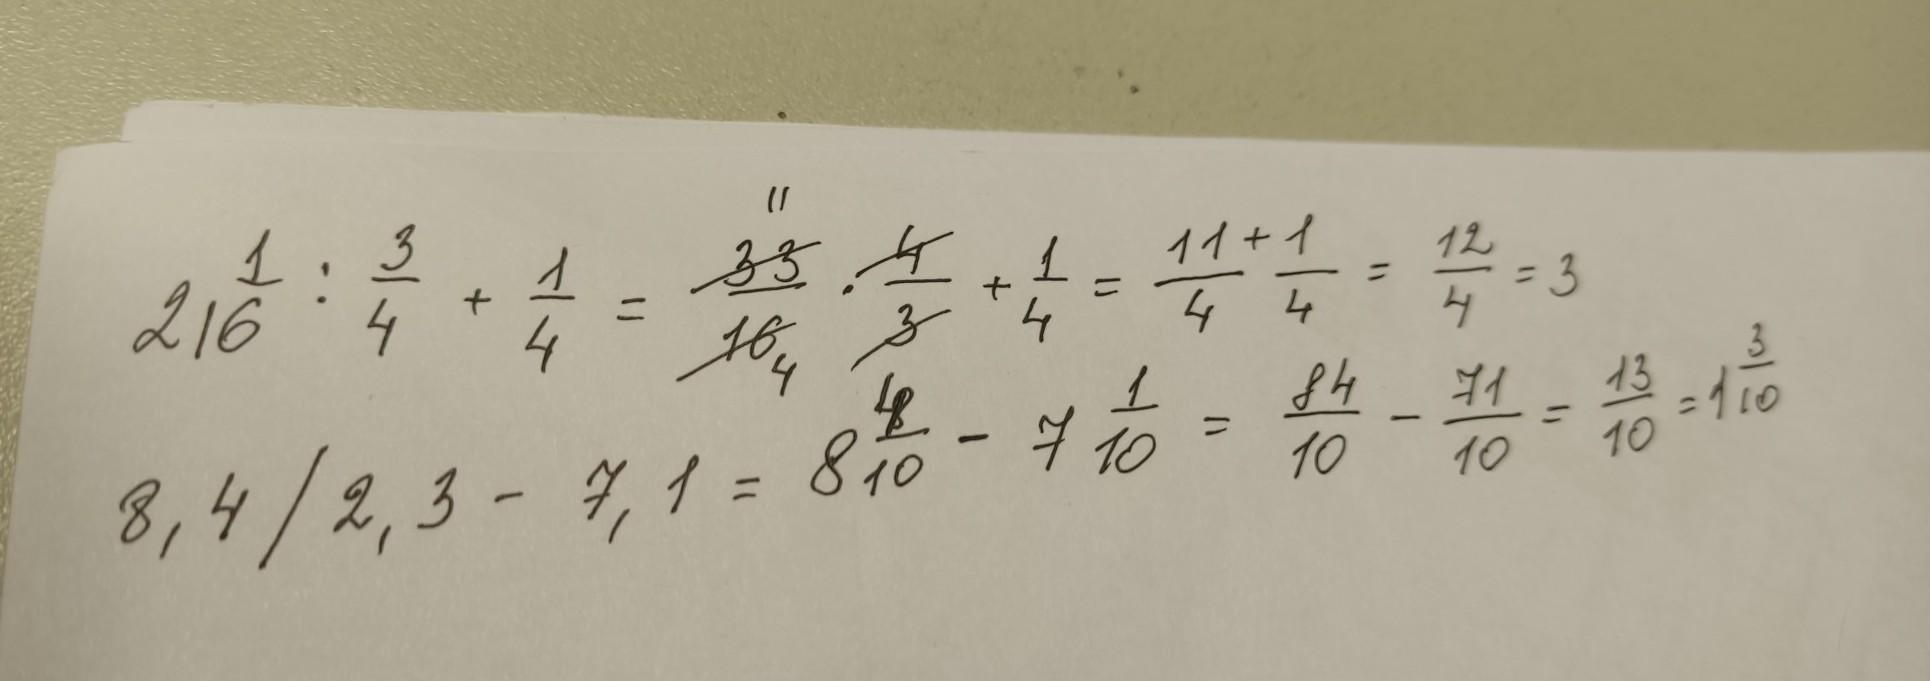 2 1/16 : 3/4 + 1/4 = 33/16 · 4/3 + 1/4 = 11/4 + 1/4 = 12/4 = 3
8,4 / 2,3 - 7,1 = 8 4/10 - 7 1/10 = 84/10 - 71/10 = 13/10 = 1 3/10